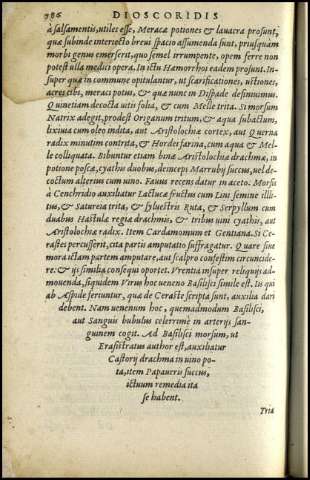 786 DIOSCORIDIS
à salsamentis, utiles esse, Meracæ potiones & lauacra prosunt,
quæ subinde interiecto breui spacio assumenda sunt, priusquam
morbi genus emerserit, quo semel irrumpente, opem ferre non
potest ulla medici opera. In ictu Hæmorrhoi eadem prosunt. In-
super quæ in commune opitulantur, ut scarificationes, ustiones,
acres cibi, meraci potus, & quæ nunc in Dispade desinimus.
Quinetiam decocta uitis folia, & cum Melle trita. Si morsum
Natrix adegit, prodest Origanum tritum, & aqua subactum,
lixiuia cum oleo indita, aut Aristolochiæ cortex, aut Querna
radix minutim contrita, & Hordei farina, cum aqua & Mel-
le colliquata. Bibuntur etiam binæ Aristolochiæ drachmæ, in
potione poscæ, cyathis duobus, deinceps Marrubij succus, uel de-
coctum alterius cum uino. Fauus recens datur in aceto. Morsis
a Cenchridio auxiliatur Lactucæ fructus cum Lini semine illi-
tus, & Satureia trita, & syluestris Ruta, & Serpyllum cum
duabus Hastulæ regiæ drachmis, & tribus uini cyathis, aut
Aristolochiæ radix. Item Cardamomum et Gentiana. Si Ce-
rastes percusserit, cita partis amputatio suffragatur. Quare sine
mora ictam partem amputare, aut scalpro confestim circuncide-
re, & ijs similia consequi oportet. Vrentia insuper reliquijs ad-
mouenda, siquidem Virus hoc ueneno Basilisci simile est. Iis qui
ab Aspide feriuntur, quæ de Ceraste scripta sunt, auxilia dari
debent. Nam uenenum hoc, quemadmodum Basilisci,
aut Sanguis bubulus celerrimè in arterijs san-
guinem cogit. Ad Basilisci morsum, ut
Erasistratus author est, auxiliatur
Castorij drachma in uino po-
ta, item Papaueris succus,
ictuum remedia ita
se habent.
Tria